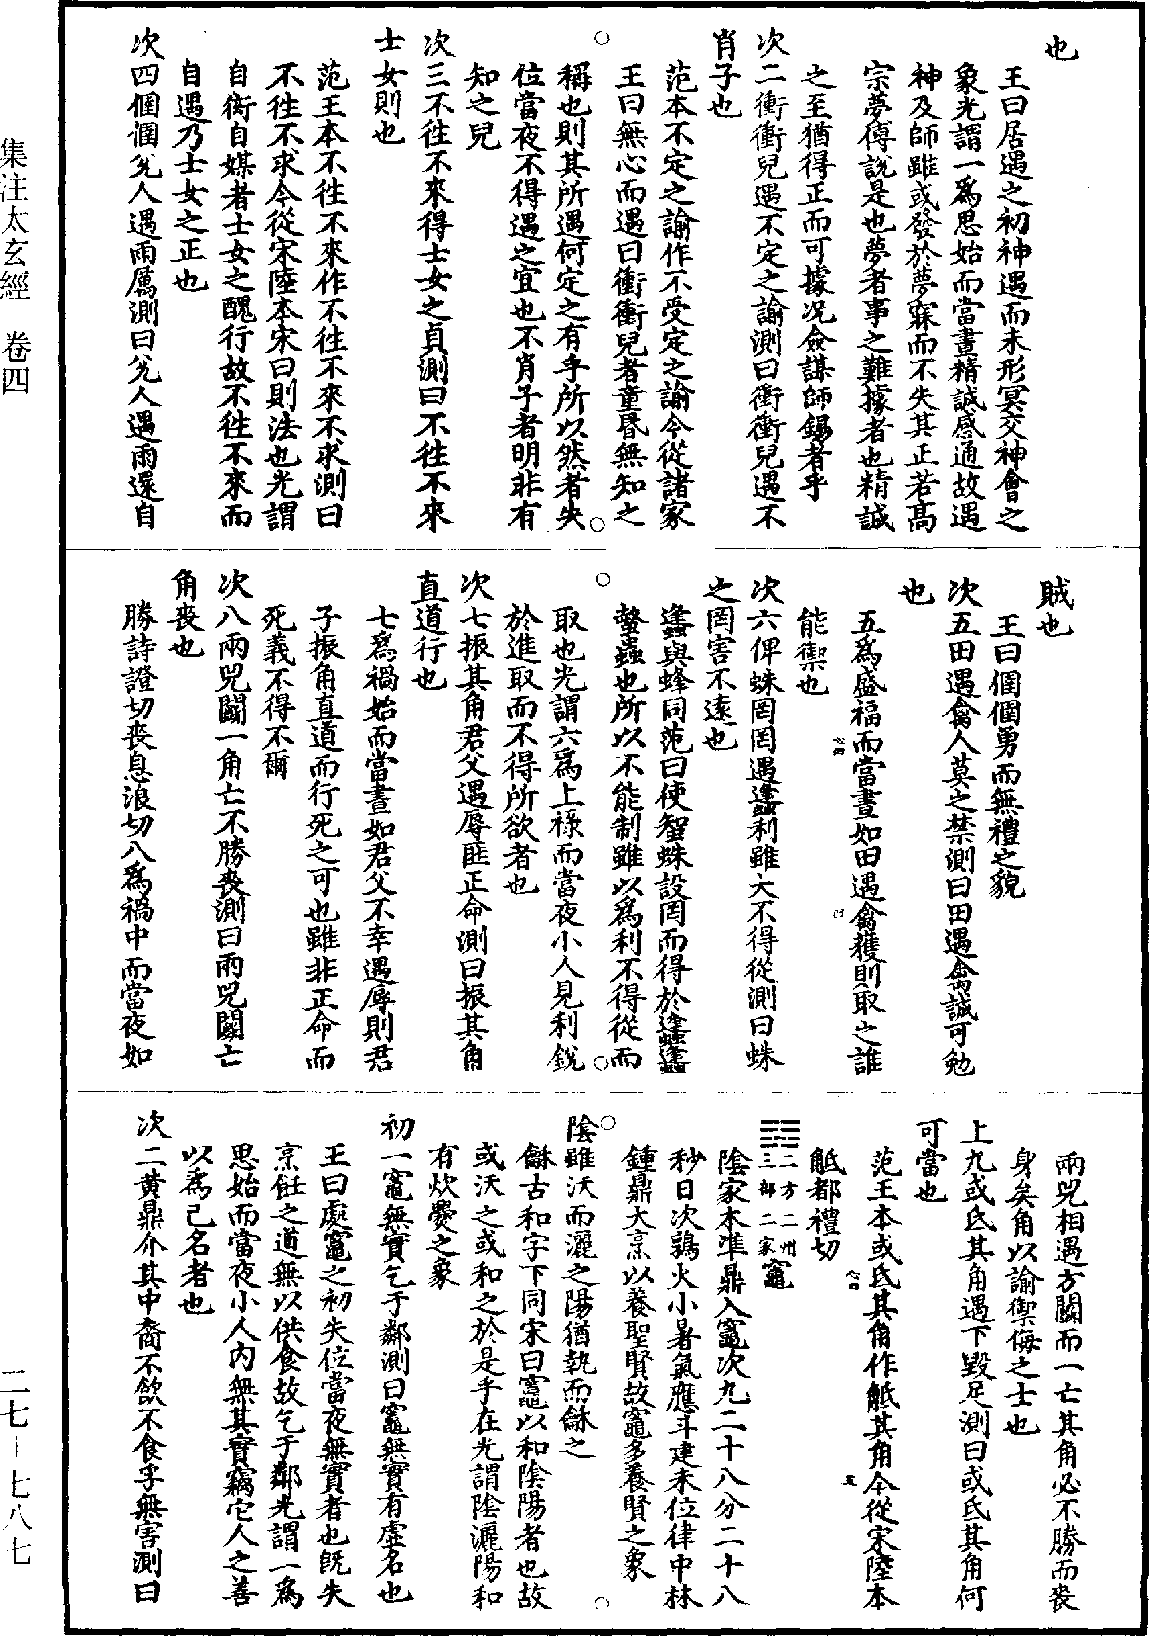 也
王曰居遇之初神遇而未形冥交神會之
象光謂一爲思始而當晝精誠感通故遇
神及師雖或發於夢寐而不失其正若高
宗夢傅說是也夢者事之難據者也精誠
之至猶得正而可據况僉謀師錫者乎
次二衝衝兒遇不定之諭測曰衝衝兒遇不
肖子也
范本不定之諭作不受定之諭今從諸家
王曰無心而遇曰衝衝兒者童昬無知之
稱也則其所遇何定之有乎所以然者失
位當夜不得遇之宜也不肖子者明非有
知之兒
次三不徃不來得士女之貞測曰不徃不來
士女則也
范王本不徃不來作不徃不來不求測曰
不徃不求今從宋陸本宋曰則法也光謂
自衒自媒者士女之醜行故不徃不來而
自遇乃士女之正也
次四個個兊人遇雨厲測曰兊人遇雨還自
賊也
王曰個個勇而無禮之貌
次五田遇禽人莫之禁測曰田遇禽誠可勉
也
五爲盛福而當晝如田遇禽獲則取之誰
能禦也
次六俾蛛罔罔遇䗬利雖大不得從測曰蛛
之罔害不遠也
䗬與蜂同范曰使智蛛設罔而得於䗬䗬
螫蟲也所以不能制雖以爲利不得從而
取也光謂六爲上禄而當夜小人見利銳
於進取而不得所欲者也
次七振其角君父遇辱匪正命測曰振其角
直道行也
七爲禍始而當晝如君父不幸遇辱則君
子振角直道而行死之可也雖非正命而
死義不得不爾
次八兩兕鬭一角亡不勝喪測曰兩兕鬭亡
角喪也
勝詩證切喪息浪切八爲禍中而當夜如
兩兕相遇方鬭而一亡其角必不勝而喪
身矣角以諭禦侮之士也
上九或氐其角遇下毀足測曰或氐其角何
可當也
范王本或氐其角作觝其角今從宋陸本
觝都禮切
䷱二方二州三部二家竈
陰家木準鼎入竈次九二十八分二十八
秒日次鶉火小暑氣應斗建未位律中林
鍾鼎大烹以養聖賢故竈多養賢之象
陰雖沃而灑之陽猶執而龢之
龢古和字下同宋曰竈以和陰陽者也故
或沃之或和之於是乎在光謂陰灑陽和
有炊爨之象
初一竈無實乞于鄰測曰竈無實有虛名也
王曰處竈之初失位當夜無實者也既失
烹飪之道無以供食故乞于鄰光謂一爲
思始而當夜小人內無其實竊它人之善
以爲己名者也
次二黄鼎介其中裔不飲不食孚無害測曰
集注太玄經　卷四
二七－七八七